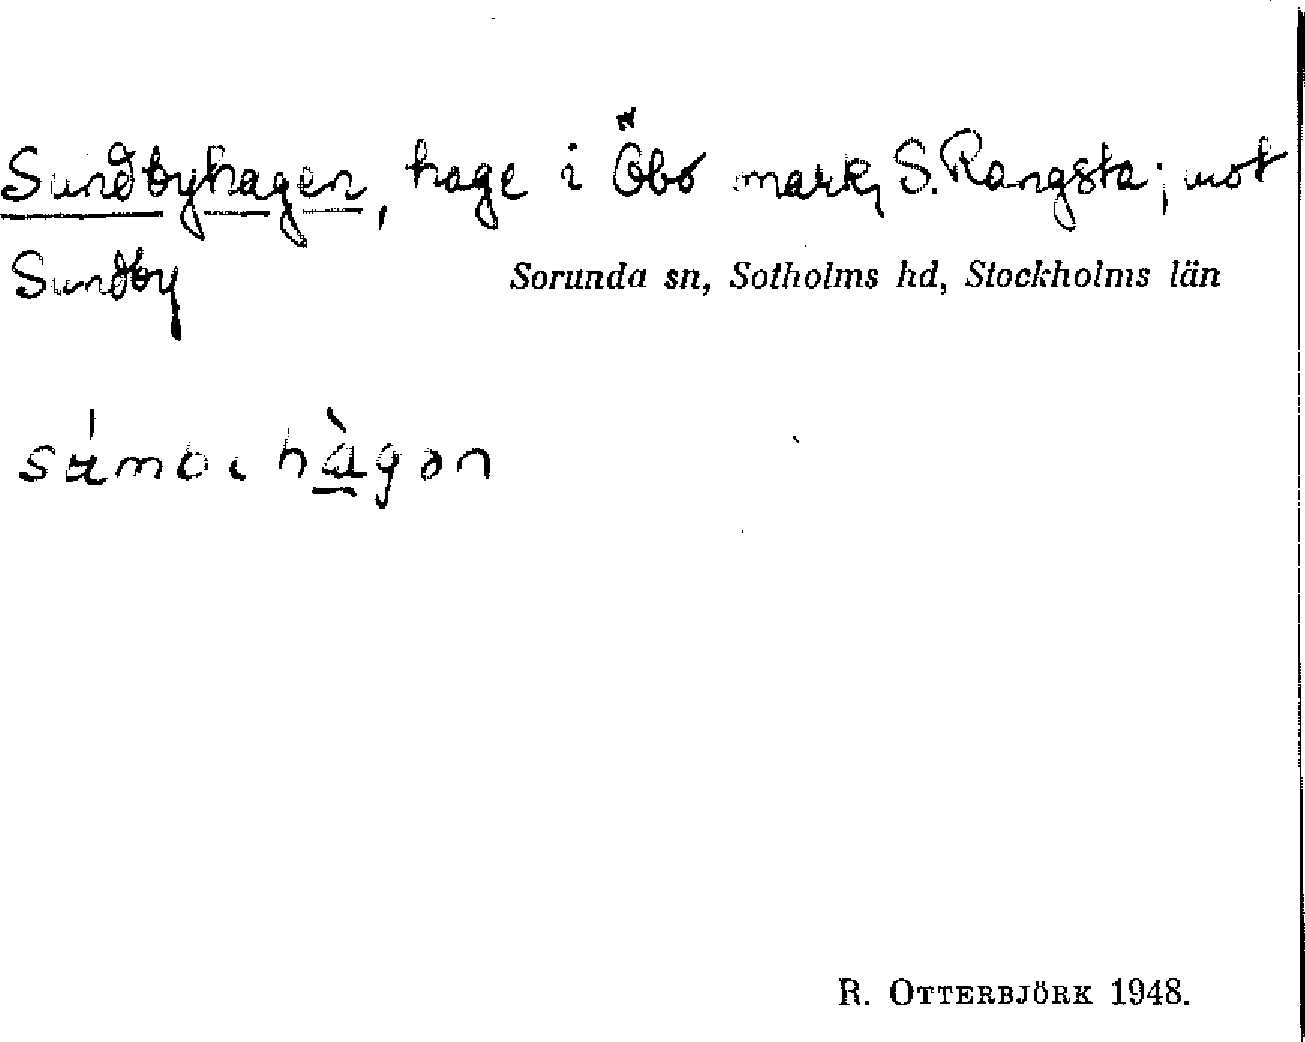 Sundbyhagen, hage i Öbo mark, S. Rangsta; mot
Sundby
Sorunda sn, Sotholms hd, Stockholms län
R. OTTERBJÖRK 1948.